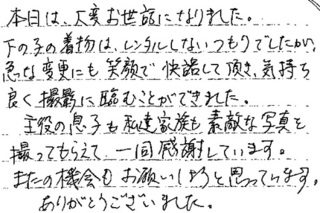 本日は、大変お世話になりました。
下の子の着物は、レンタルしないつもりでしたが、
急な変更にも笑顔で快諾して頂き、気持ち
良く撮影に臨むことができました。
主役の息子も私達家族も素敵な写真を
撮ってもらえて、一同感謝しています。
またの機会もお願いしようと思っています。
ありがとうございました。